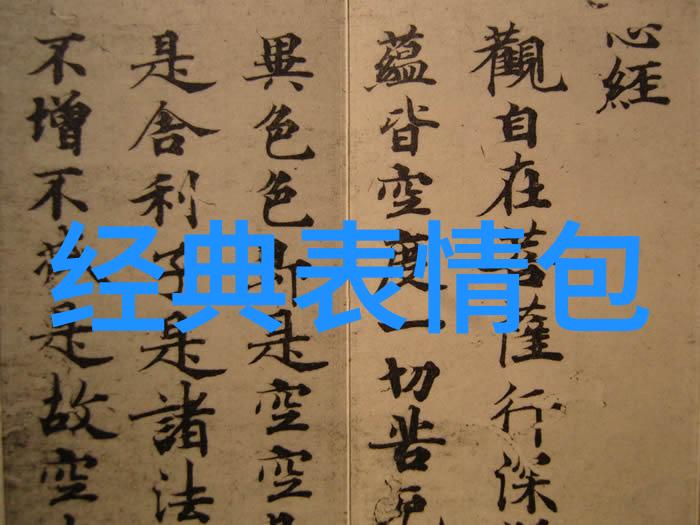 心經
觀自在菩薩行深
蘊皆空度一切苦厄
異色色即是空空
是舍利子是諸法
不增不減是故空
经典表情包